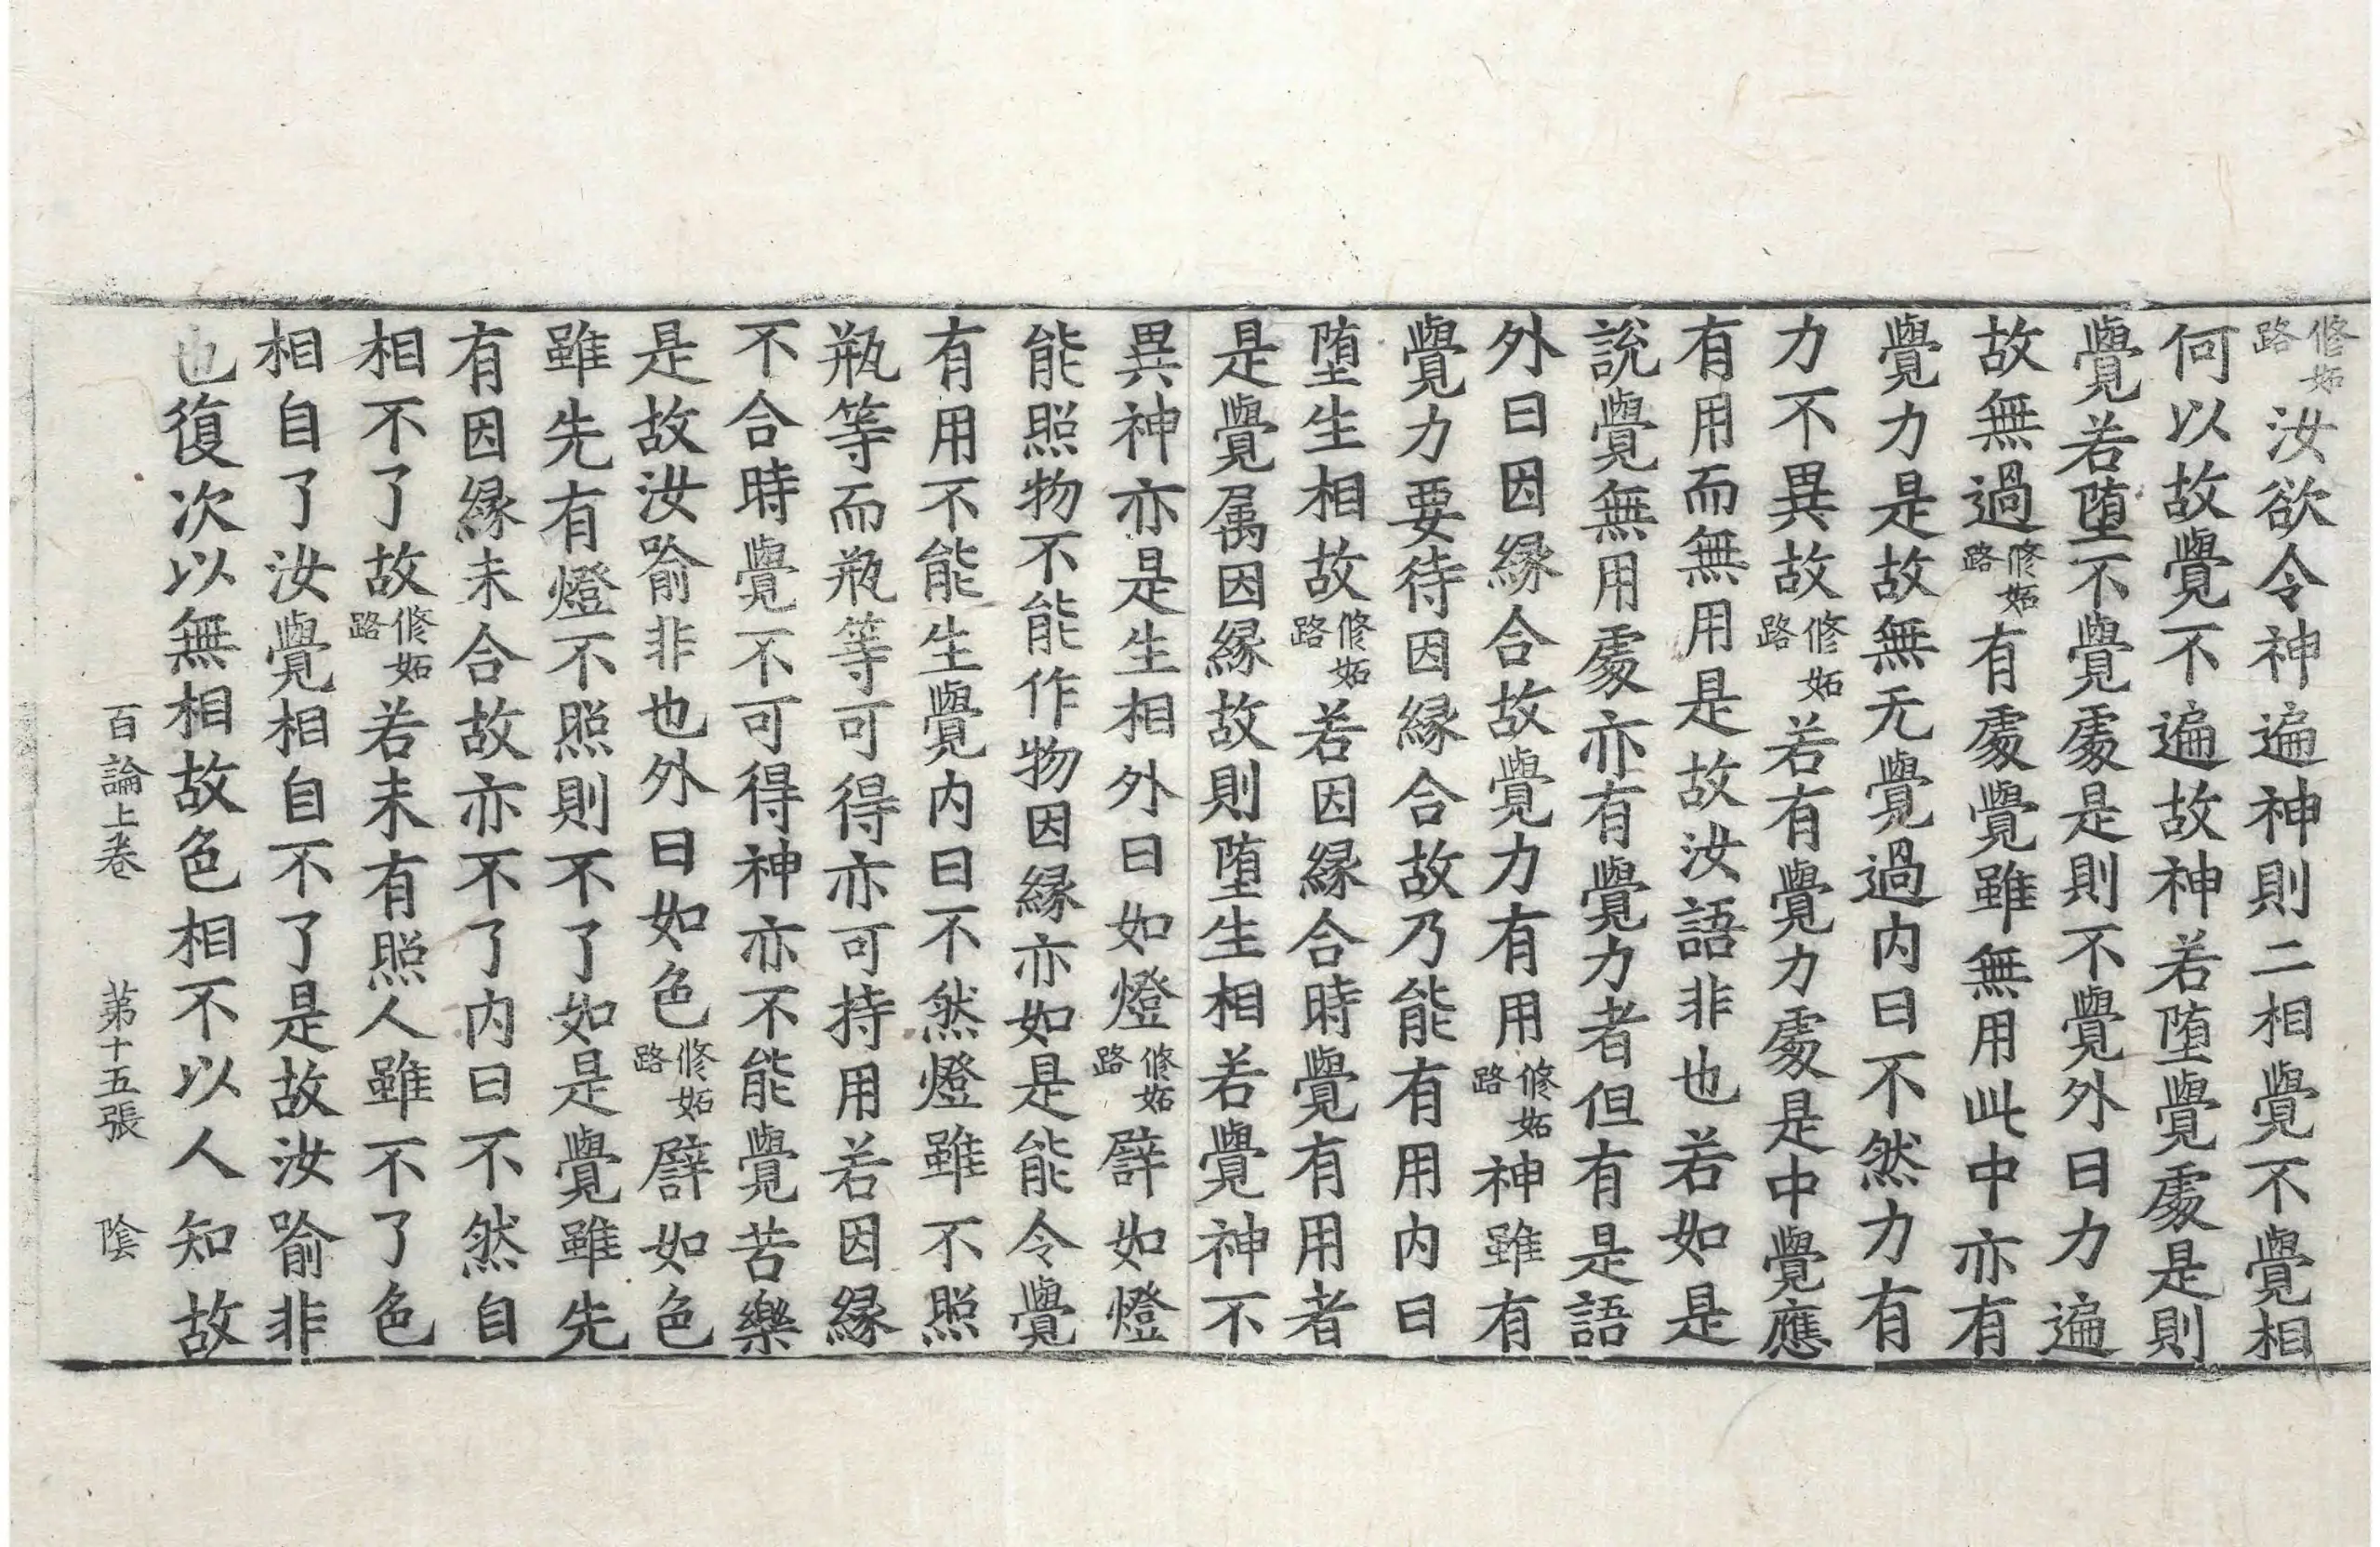 修妬路汝欲令神遍神則二相覺不覺相
何以故覺不遍故神若堕覺處是則
覺若堕不覺處是則不覺外曰力遍
故無過修妬路有處覺雖無用此中亦有
覺力是故無无覺過內曰不然力有
力不異故修妬路若有覺力處是中覺應
有用而無用是故汝語非也若如是
說覺無用處亦有覺力者但有是語
外曰因縁合故覺力有用修妬路神雖有
覺力要待因縁合故乃能有用內曰
堕生相故修妬路若因縁合時覺有用者
是覺属因縁故則堕生相若覺神不
異神亦是生相外曰如燈修妬路譬如燈
能照物不能作物因縁亦如是能令覺
有用不能生覺內曰不然燈雖不照
瓶等而瓶等可得亦可持用若因縁
不合時覺不可得神亦不能覺苦樂
是故汝喻非也外曰如色修妬路譬如色
雖先有燈不照則不了如是覺雖先
有因縁未合故亦不了內曰不然自
相不了故修妬路若未有照人雖不了色
相自了汝覺相自不了是故汝喻非
也復次以無相故色相不以人知故
百論上卷 第十五張 隂